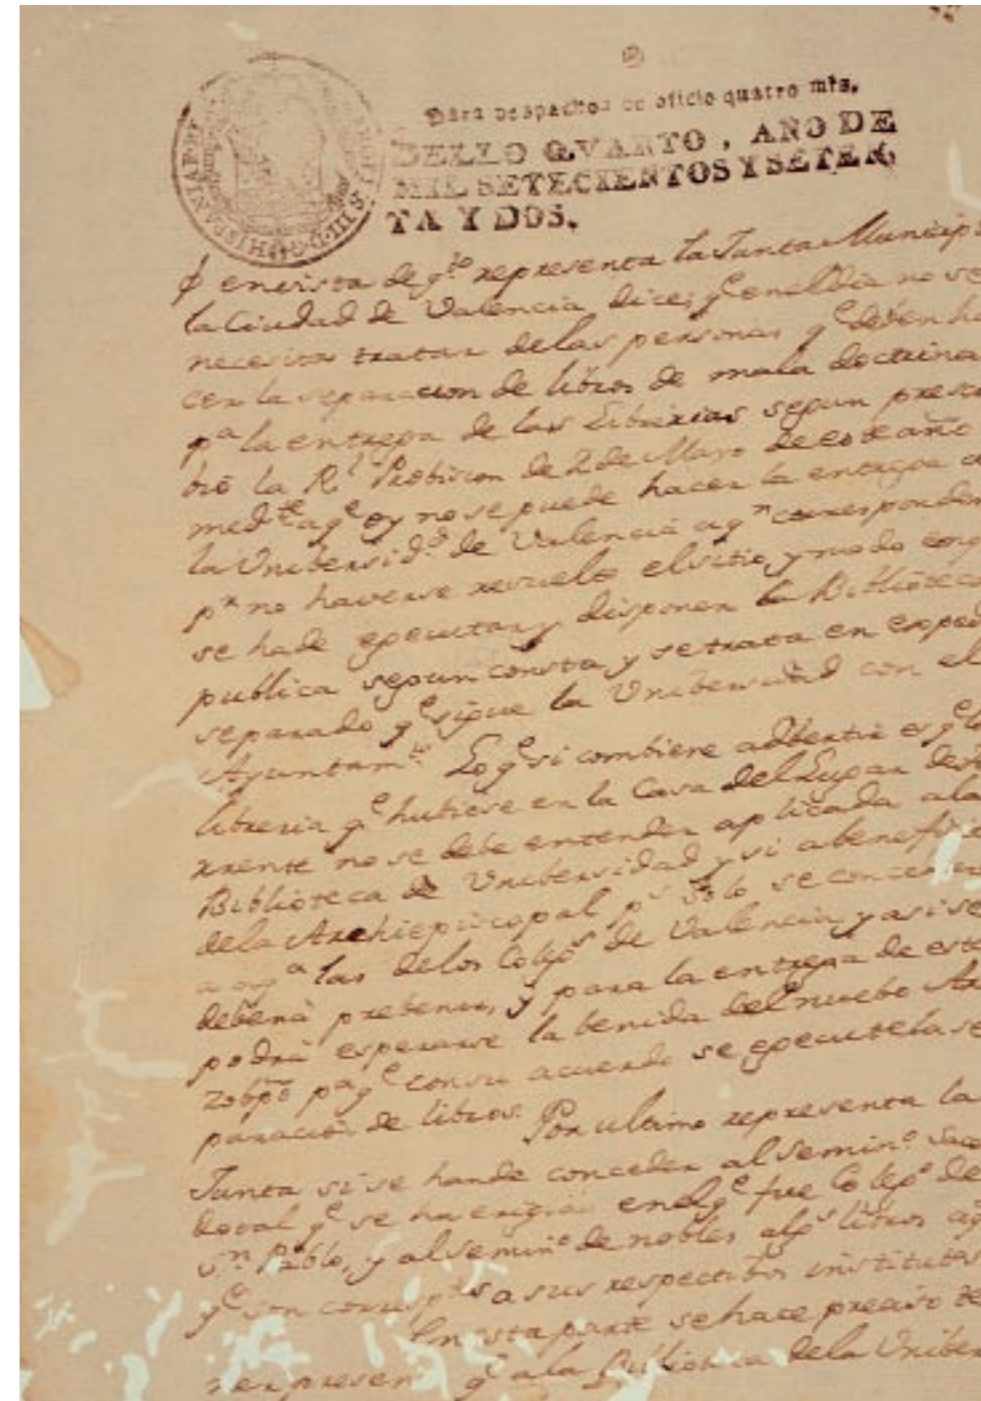 CAROLUS III D.G. HISPANIAR
Para despachos de oficio quatro mrs.
SELLO QVARTO, AÑO DE
MIL SETECIENTOS Y SETEN,
TA Y DOS.
en vista de q.to representa la Junta Municip
la Ciudad de Valencia dice, q.e en el dia no se
necesita tratar de las personas q.e deben ha
cer la separacion de libros de mala doctrina
p.a la entrega de las Librerias segun prescri
bió la R.l Probision de 2 de Mayo de este año
med.te a q.e oy no se puede hacer la entrega a
la Unibersid.d de Valencia a q.n corresponden
p.r no haverse resuelto el sitio, y modo en q
se ha de egecutar, y disponer la Biblioteca
publica segun consta y se trata en exped
separado q.e sigue la Unibersidad con el
Ayuntam.to Lo q.e si combiene adbertir es q.e la
libreria q.e hubiese en la Casa del Lugar de
rrente no se debe entender aplicada a la
Biblioteca de Unibersidad y si a benefici
de la Archiepiscopal p.s solo se conceden
a aq.a las de los Coleg.s de Valencia, y asi se
deberá prebenir, y para la entrega de este
podrá esperarse la benida del nuebo Ar
zobpō p.a q.e con su acuerdo se egecute la se
paracion de libros. Por ultimo representa la
Junta si se han de conceder al Semin.o Sacer
dotal q.e se ha erigido en el q.e fue Coleg.o de
S.n Pablo, y al Semin.o de nobles alg.s libros
q.e son corresp.tes a sus respectibos institutos
En esta parte se hace preciso te
ner presen q.e a la Biblioteca de la Uniber